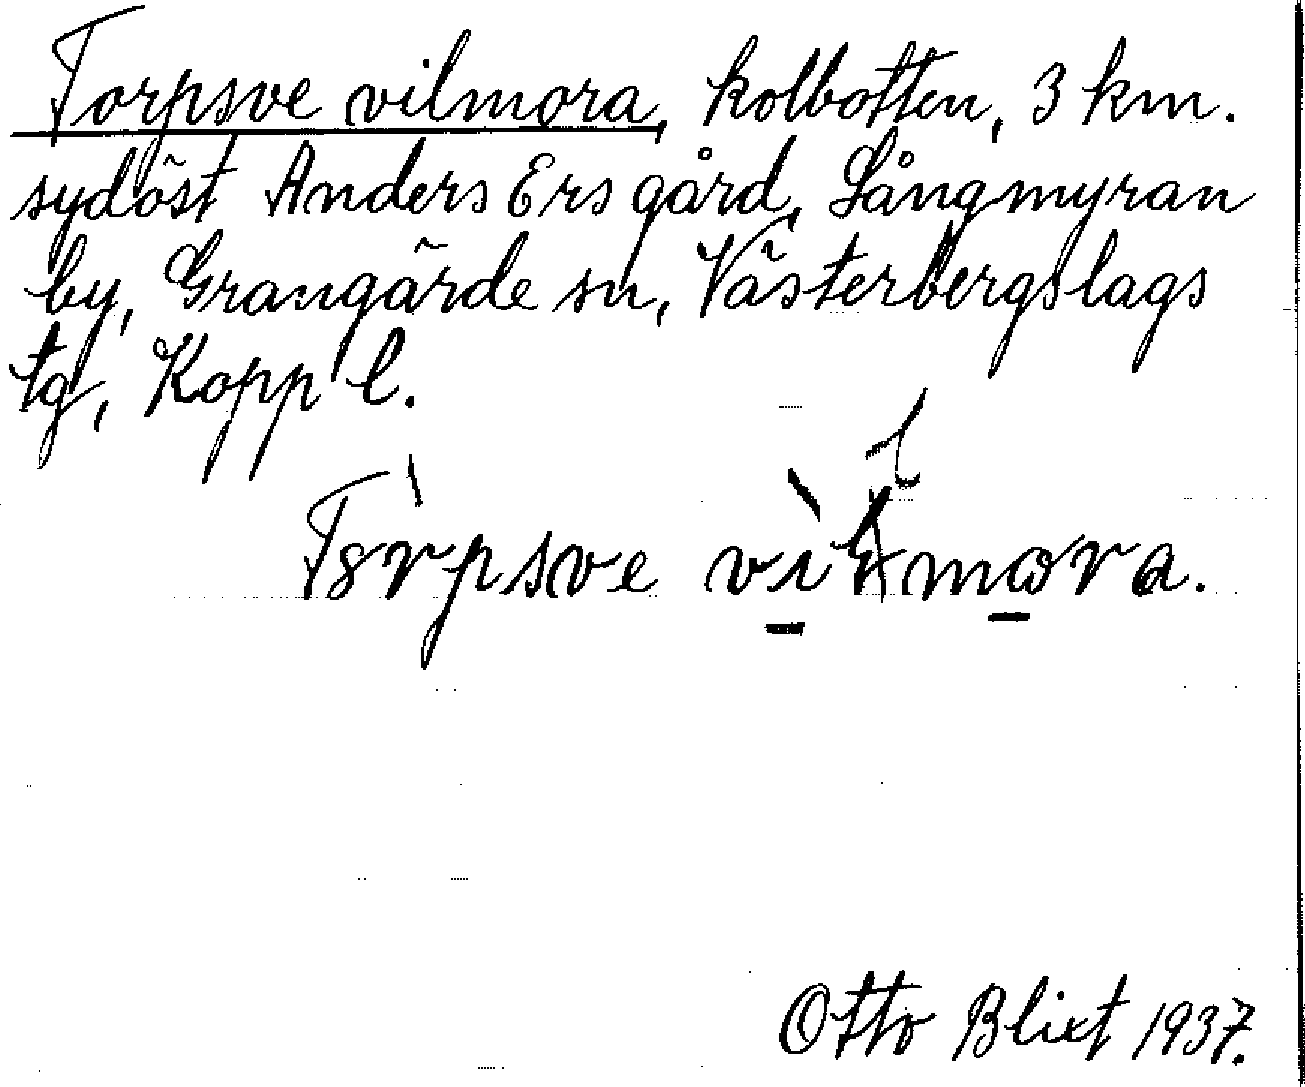 Torpsve vilmora, kolbotten, 3 km.
sydöst Anders Ers gård, Långmyran
by, Grangärde sn, Västerbergslags
tg, Kopp l.
Torpsve
Otto Blixt 1937.